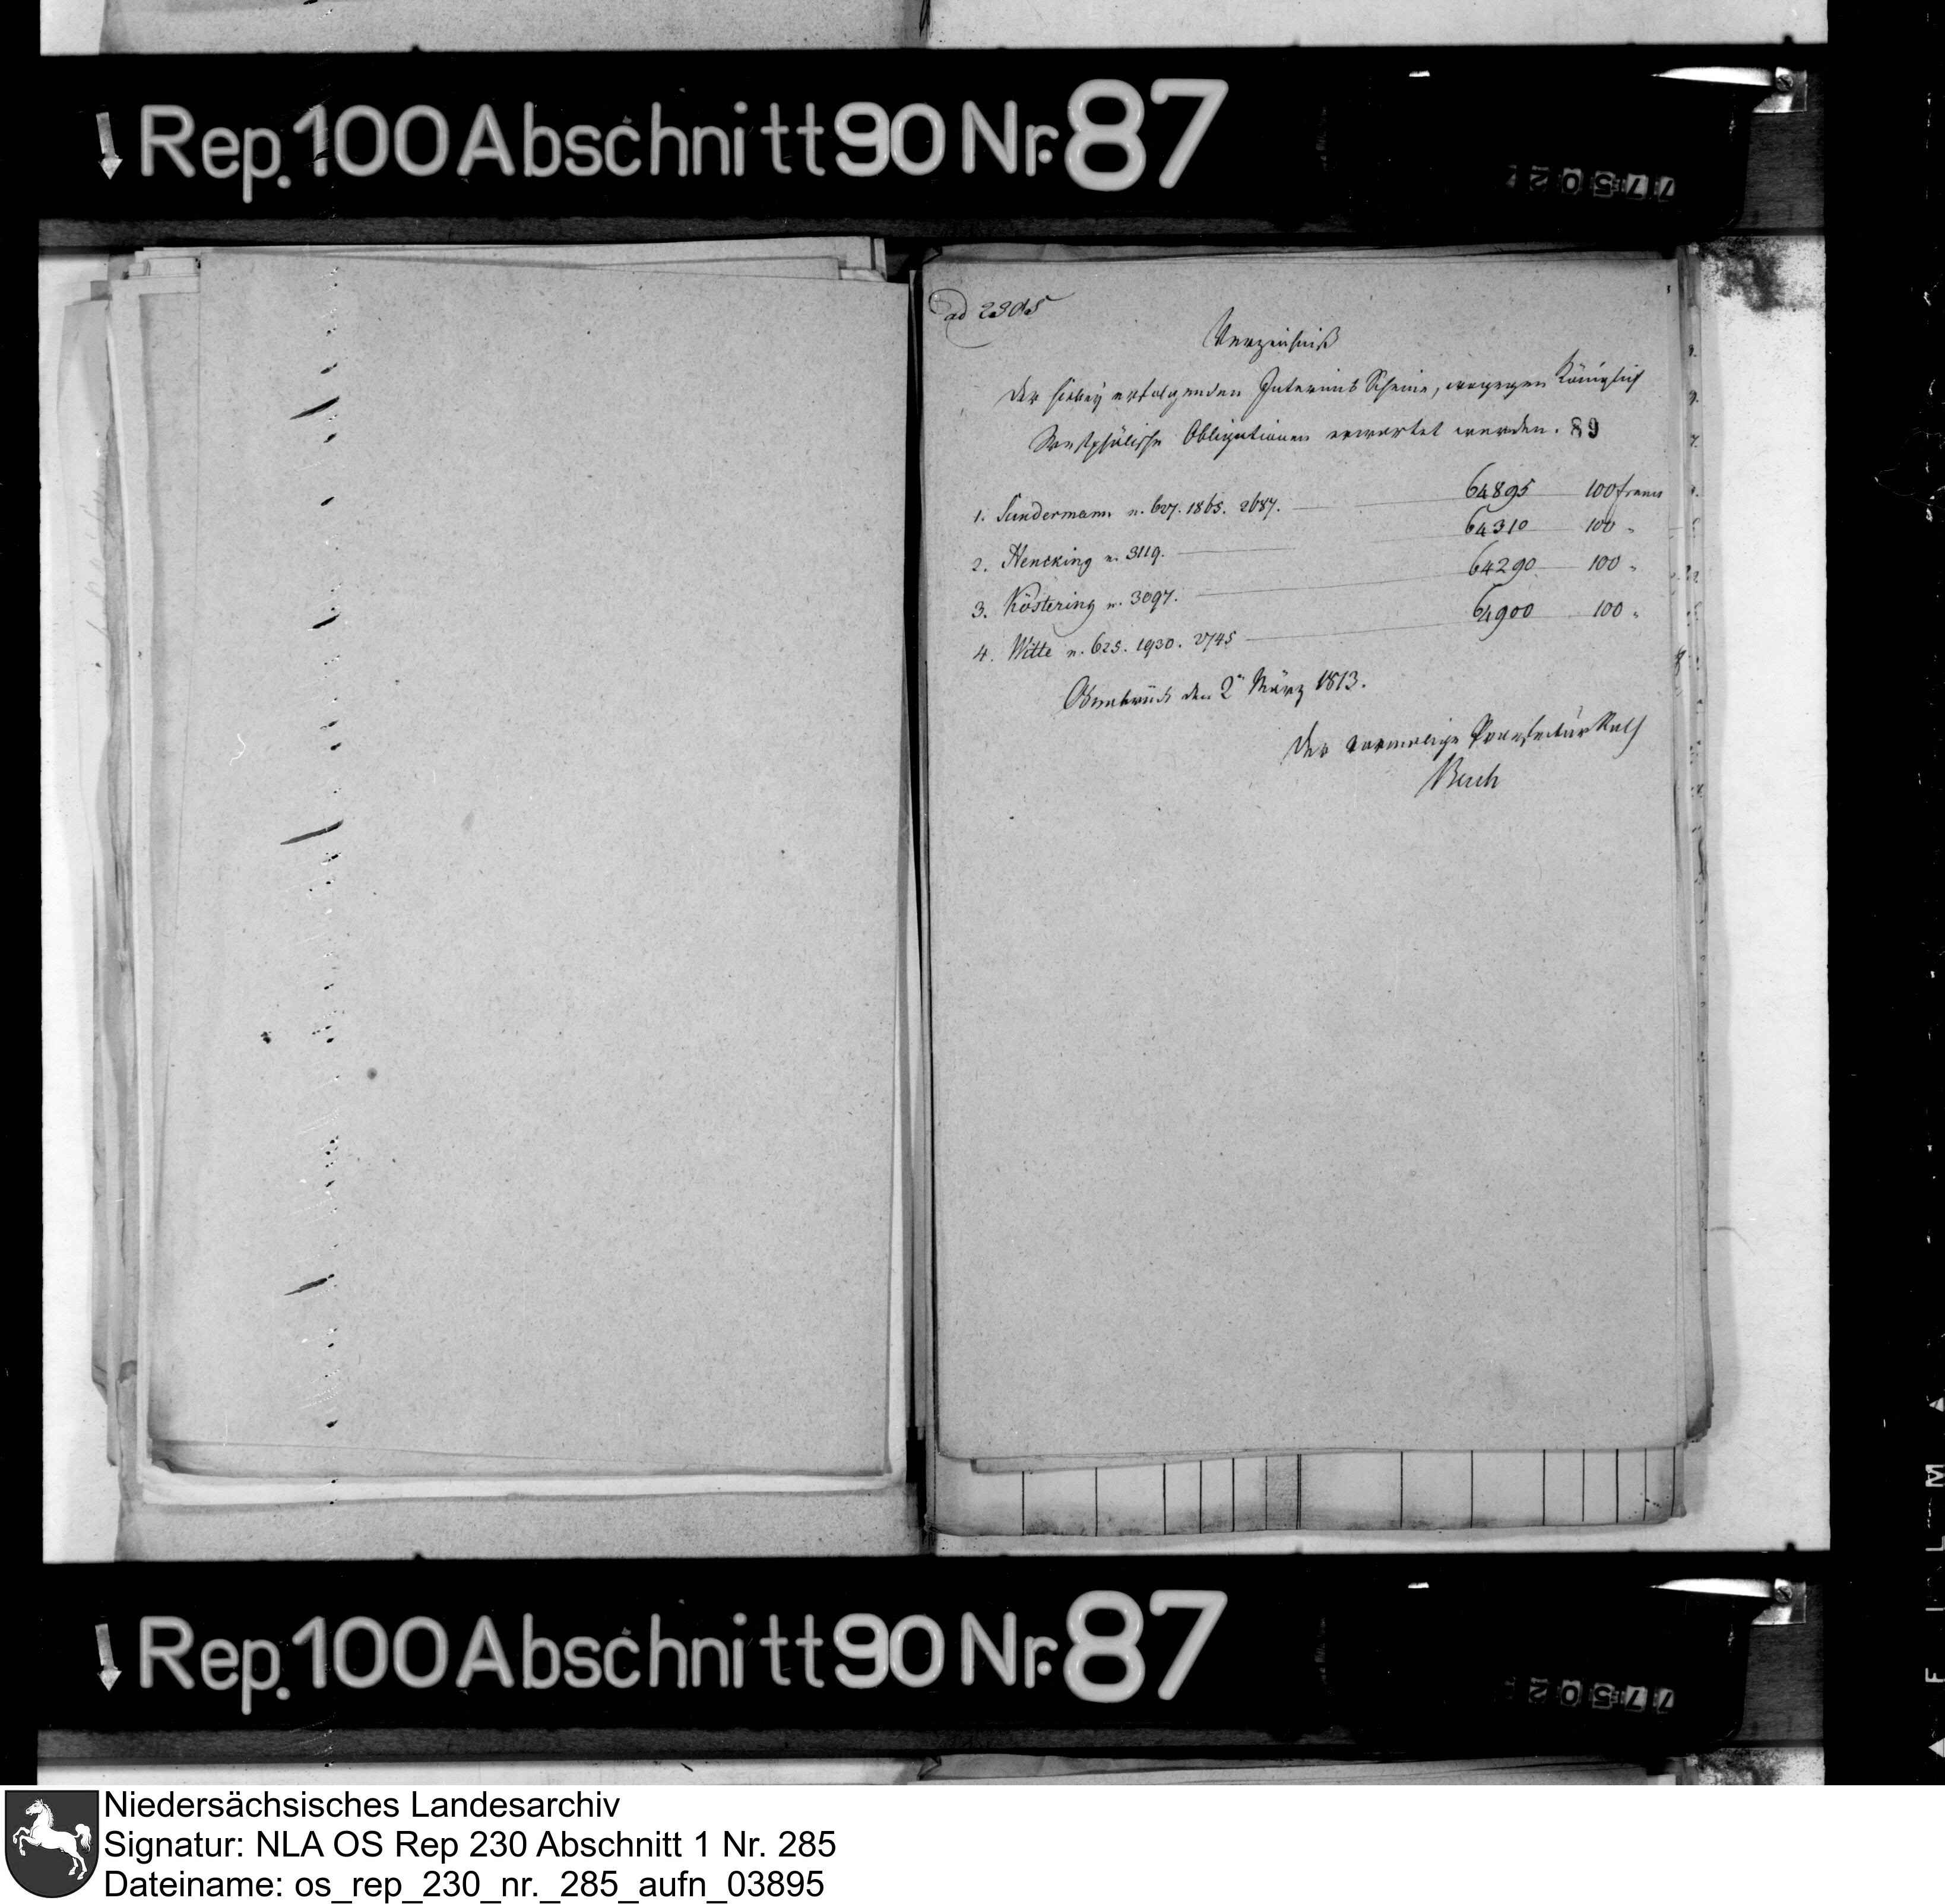 Rep. 100 Abschnitt 90 Nr. 87
77502
ad 2905
Verzeichniß
der hiebey erfolgenden Interims Scheine, wogegen Königlich
Westphälische Obligationen erwartet werden. 89
1. Sundermann n. 627. 1865. 2687. 64895 100 francs
2. Hencking n. 3119. 64310 100 "
3. Köstering n. 3097. 64290 100 "
4. Witte n. 625. 1930. 2745 64900 100 "
Osnabrück den 2n März 1813.
Der vormalige Praefectur Rath
Buch
Rep. 100 Abschnitt 90 Nr. 87
77502
FILM
Niedersächsisches Landesarchiv
Signatur: NLA OS Rep 230 Abschnitt 1 Nr. 285
Dateiname: os_rep_230_nr._285_aufn_03895